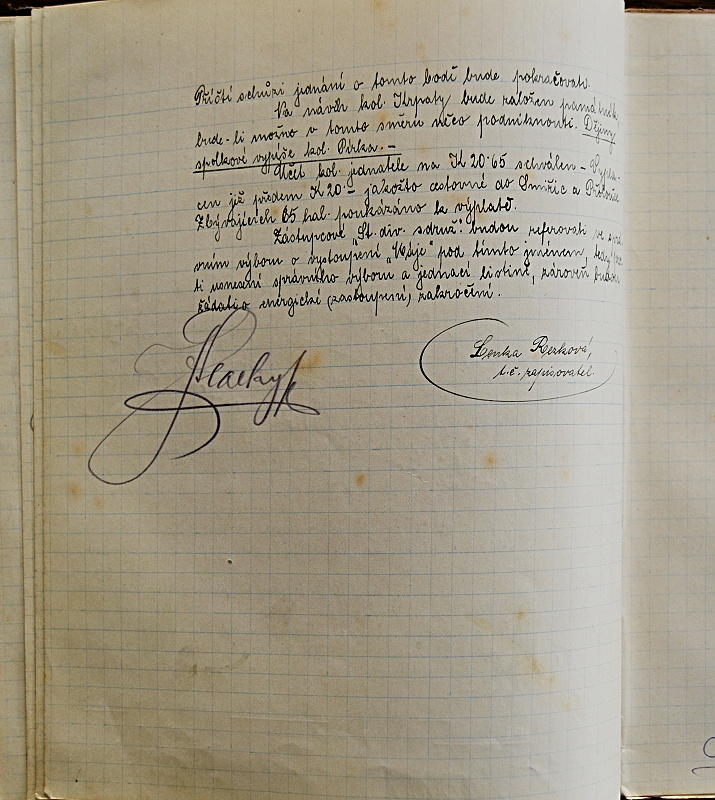 Příští schůzi jednání o tomto bodě bude pokračovati.
Na návrh kol. Krpaty bude založen památník,
bude-li možno v tomto směru něco podniknouti. Dějiny
spolkové vypíše kol. Pirka. —
Účet kol. jednatele na K 20·65 schválen — Vypla-
cen již předem K 20·— jakožto cestovné do Smiřic a
Zbývajících 65 hal. poukázáno k výplatě.
Zástupcové „St. div. sdruž." budou referovati ve sprá-
vním výboru o vystoupení „Máje" pod tímto jménem, tedy
ti usnesení správního výboru a jednací listině, zároveň budou
žádati o energické (zastoupení) zakročení.
Lenka Rezková,
t. č. zapisovatel.